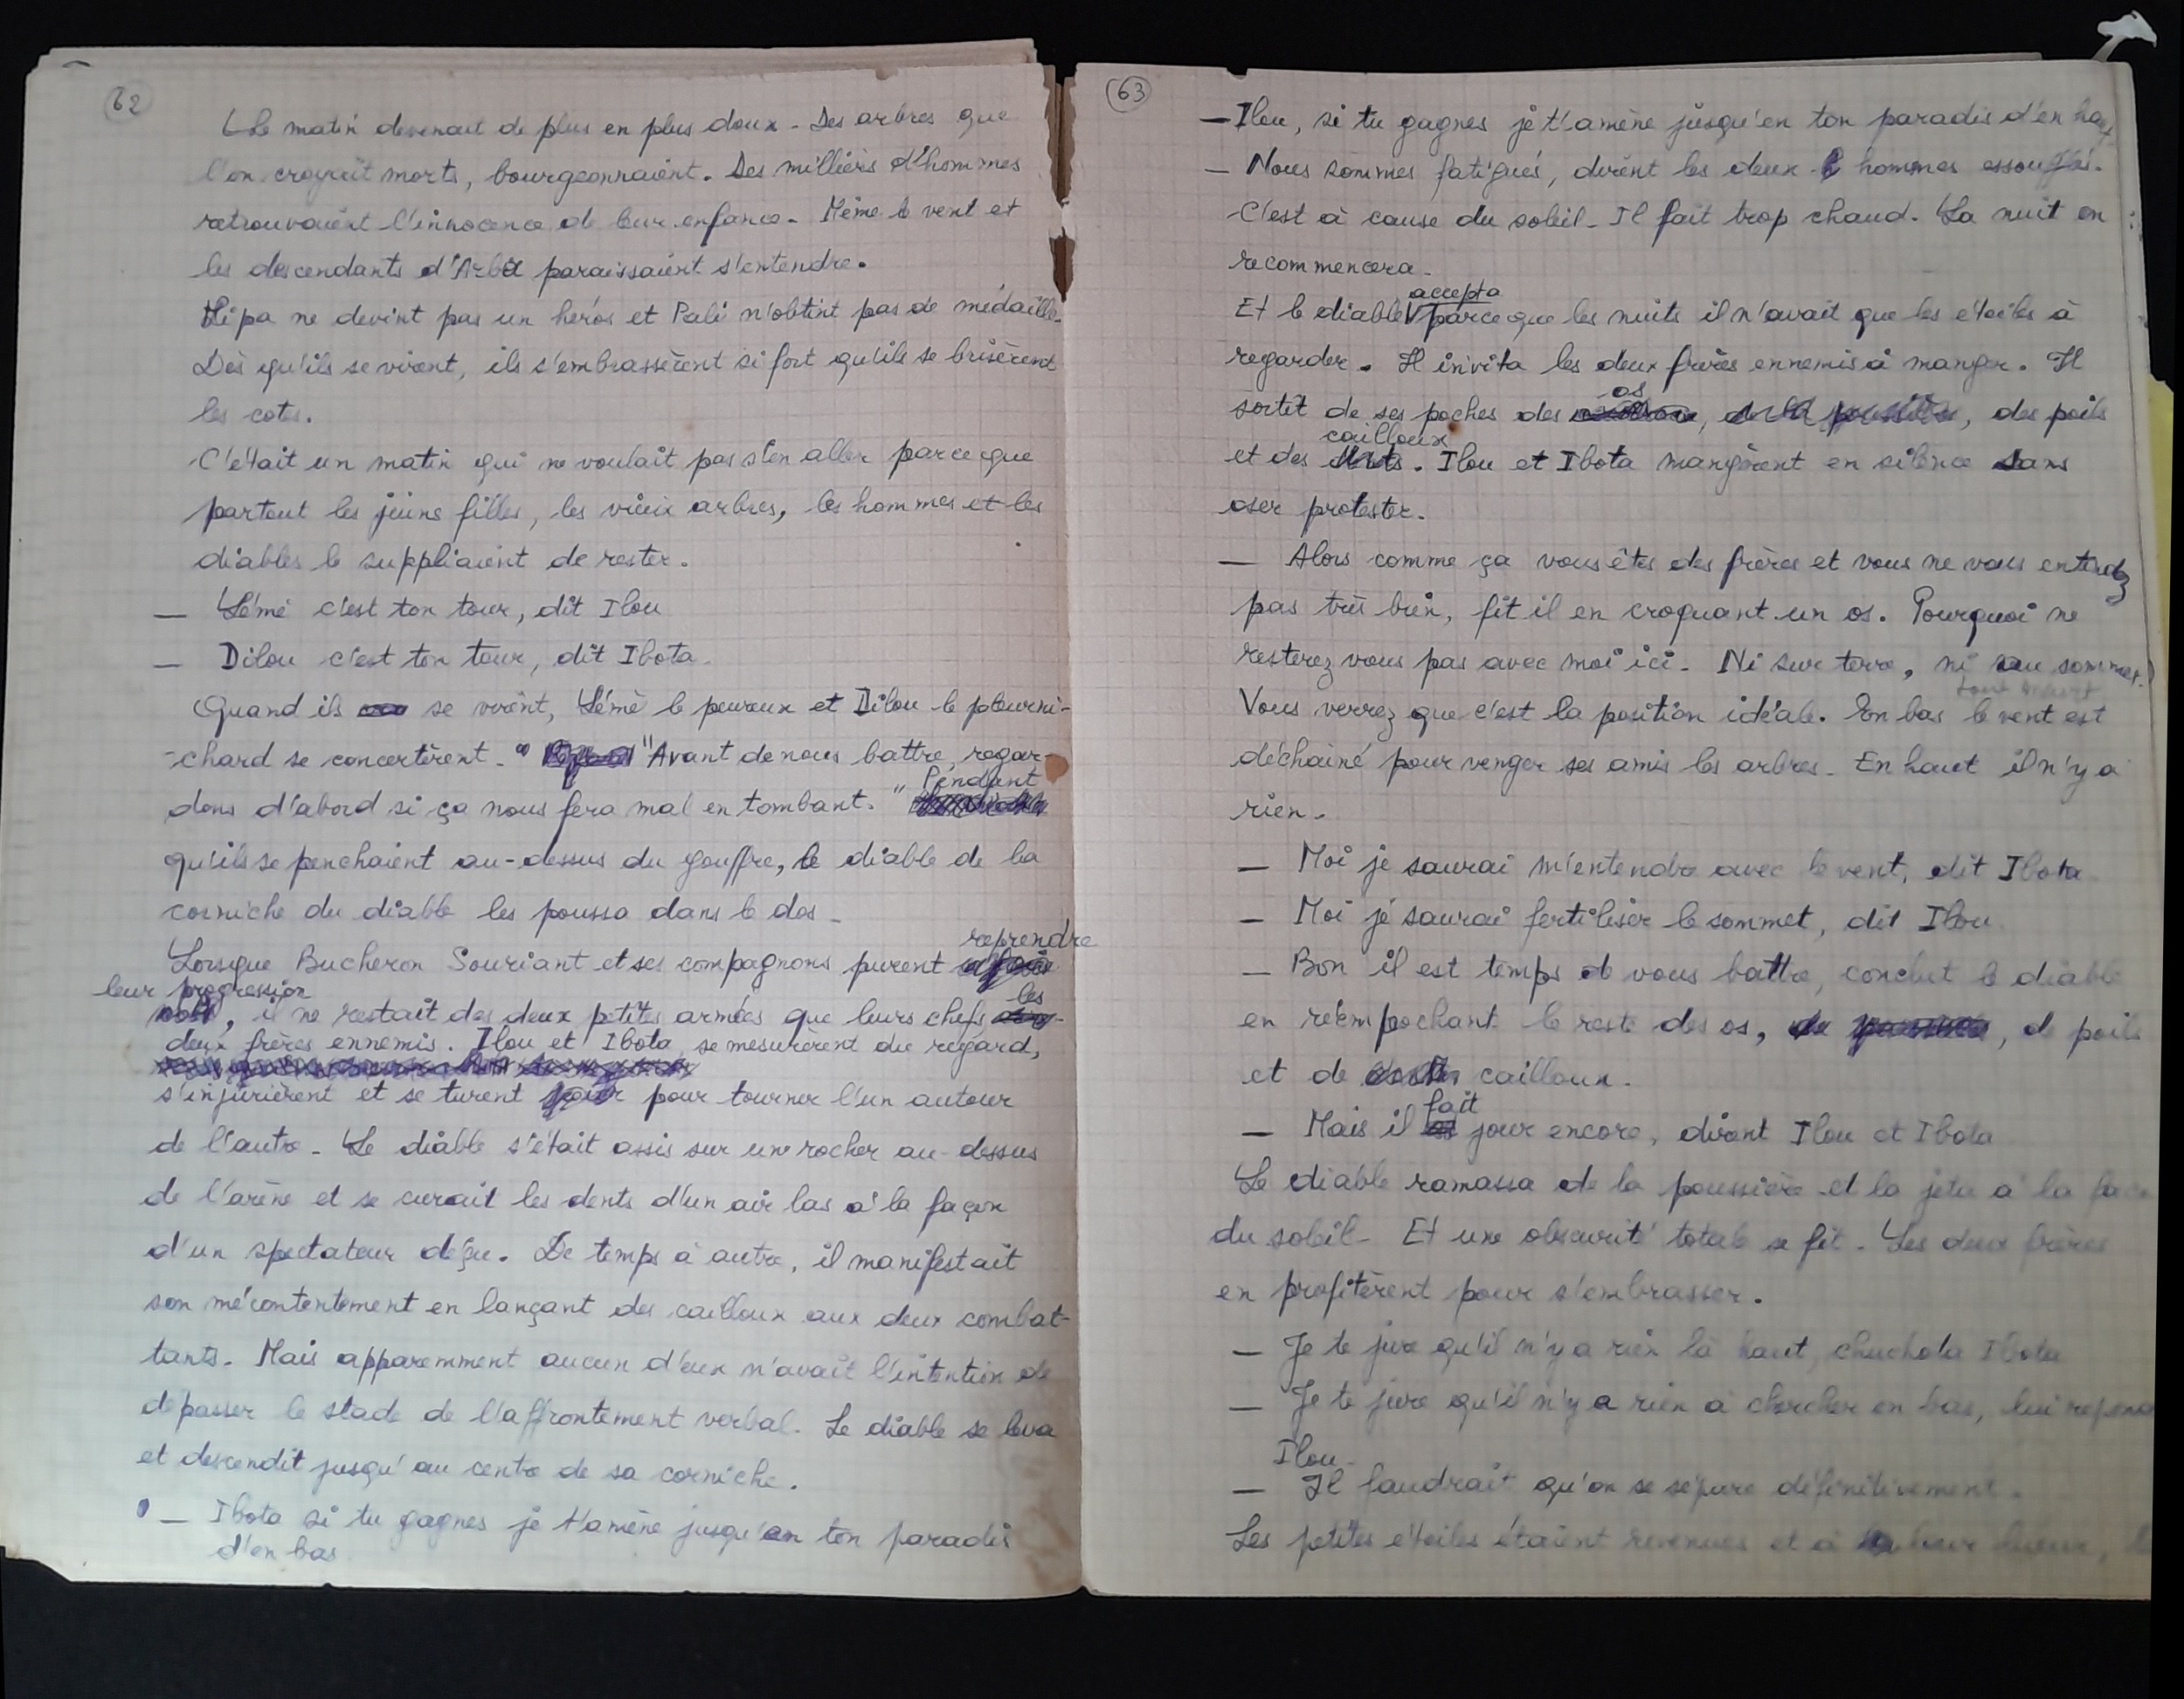 62
Le matin devenait de plus en plus doux. Des arbres que
l'on croyait morts, bourgeonnaient. Des milliers d'hommes
retrouvaient l'innocence de leur enfance. Même le vent et
les descendants d'Arbit paraissaient s'entendre.
Lipa ne devint pas un héros et Pali n'obtint pas de médaille.
Dès qu'ils se virent, ils s'embrassèrent si fort qu'ils se brisèrent
les cotes.
C'était un matin qui ne voulait pas s'en aller parceque
partout les jeune filles, les vieux arbres, les hommes et les
diables le suppliaient de rester.
— Lémé c'est ton tour, dit Ilou
— Dilou c'est ton tour, dit Ibota.
Quand ils se virent, Lémé le peureux et Dilou le pleurni-
-chard se concertèrent. "Avant de nous battre, regar-
dons d'abord si ça nous fera mal en tombant." Pendant
qu'ils se penchaient au-dessus du gouffre, le diable de la
corniche du diable les poussa dans le dos.
Lorsque Bucheron Souriant et ses compagnons purent reprendre
leur progression, il ne restait des deux petites armées que leurs chefs les
deux frères ennemis. Ilou et Ibota se mesurèrent du regard,
s'injurièrent et se turent pour tourner l'un autour
de l'autre. Le diable s'était assis sur un rocher au-dessus
de l'arène et se curait les dents d'un air las à la façon
d'un spectateur déçu. De temps à autre, il manifestait
son mécontentement en lançant des cailloux aux deux combat-
tants. Mais apparemment aucun d'eux n'avait l'intention de
dépasser le stade de l'affrontement verbal. Le diable se leva
et descendit jusqu'au centre de sa corniche.
— Ibota si tu gagnes je t'amène jusqu'en ton paradis
d'en bas
63
— Ilou, si tu gagnes je t'amène jusqu'en ton paradis d'en haut
— Nous sommes fatigués, dirent les deux hommes essouflés.
C'est à cause du soleil. Il fait trop chaud. La nuit on
recommencera.
Et le diable accepta parceque les nuits il n'avait que les étoiles à
regarder. Il invita les deux frères ennemis à manger. Il
sortit de ses poches des os, des poils
et des cailloux. Ilou et Ibota mangèrent en silence sans
oser protester.
— Alors comme ça vous êtes des frères et vous ne vous entendez
pas très bien, fit il en croquant un os. Pourquoi ne
resterez vous pas avec moi ici. Ni sur terre, ni au sommet.
Vous verrez que c'est la position idéale. En bas le vent est
déchainé pour venger ses amis les arbres. En haut il n'y a
rien.
— Moi je saurai m'entendre avec le vent, dit Ibota
— Moi je saurai fertiliser le sommet, dit Ilou.
— Bon il est temps de vous battre, conclut le diable
en réempochant le reste des os, de poils
et de cailloux.
— Mais il fait jour encore, dirent Ilou et Ibota
Le diable ramassa de la poussière et la jeta à la face
du soleil. Et une obscurité totale se fit. Les deux frères
en profitèrent pour s'embrasser.
— Je te jure qu'il n'y a rien là haut, chuchota Ibota
— Je te jure qu'il n'y a rien à chercher en bas, lui
Ilou.
— Il faudrait qu'on se sépare définitivement.
Les petites étoiles étaient revenues et à leur lueur,